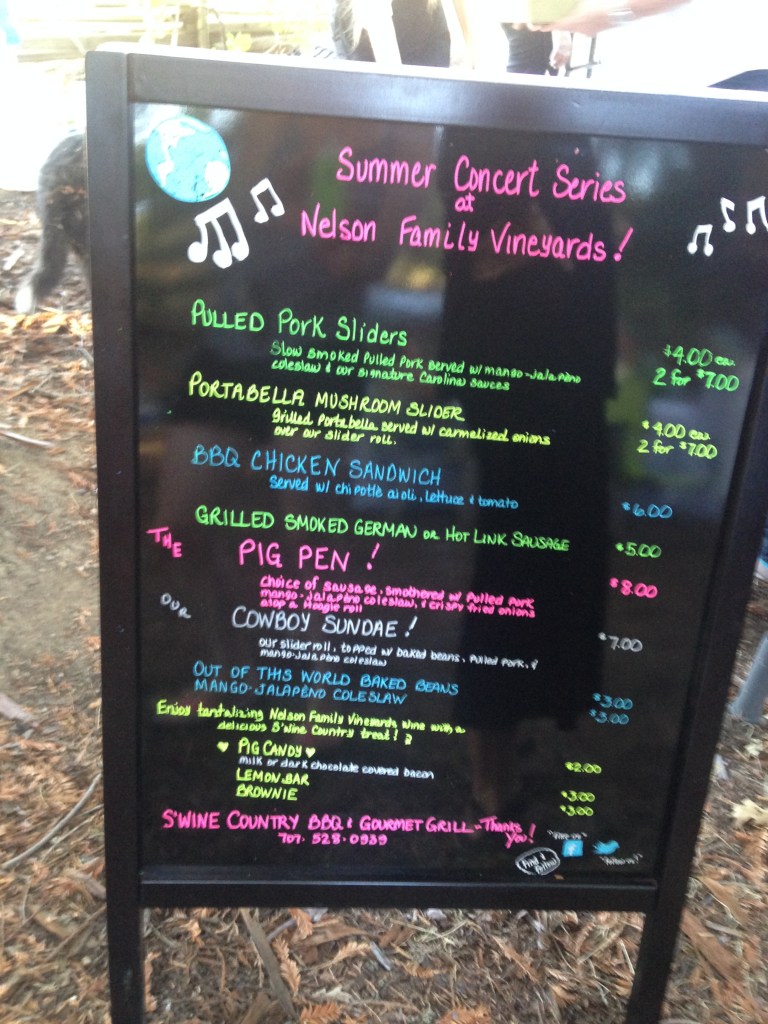 Summer Concert Series
at
Nelson Family Vineyards!
PULLED Pork Sliders
$4.00 ea.
Slow smoked Pulled Pork served w/ mango-jalapeño
coleslaw & our signature Carolina sauces
2 for $7.00
PORTABELLA MUSHROOM SLIDER
$4.00 ea.
Grilled Portabella served w/ carmelized onions
over our slider roll.
2 for $7.00
BBQ CHICKEN SANDWICH
Served w/ chipotle aioli, lettuce & tomato
$6.00
GRILLED SMOKED GERMAN or HOT LINK SAUSAGE
$5.00
THE PIG PEN!
$8.00
Choice of sausage, smothered w/ Pulled Pork
mango-jalapeño coleslaw, & crispy fried onions
atop a Hoagie roll
OUR COWBOY SUNDAE!
$7.00
our slider roll, topped w/ baked beans, pulled pork, &
mango-jalapeño coleslaw
OUT OF THIS WORLD BAKED BEANS $3.00
MANGO-JALAPEÑO COLESLAW $3.00
Enjoy tantalizing Nelson Family Vineyards wine with a
delicious S'wine Country treat!
PIG CANDY $2.00
milk or dark chocolate covered bacon
LEMON BAR $3.00
BROWNIE $3.00
S'WINE COUNTRY BBQ & GOURMET GRILL - Thank You!
707-528-0939
f